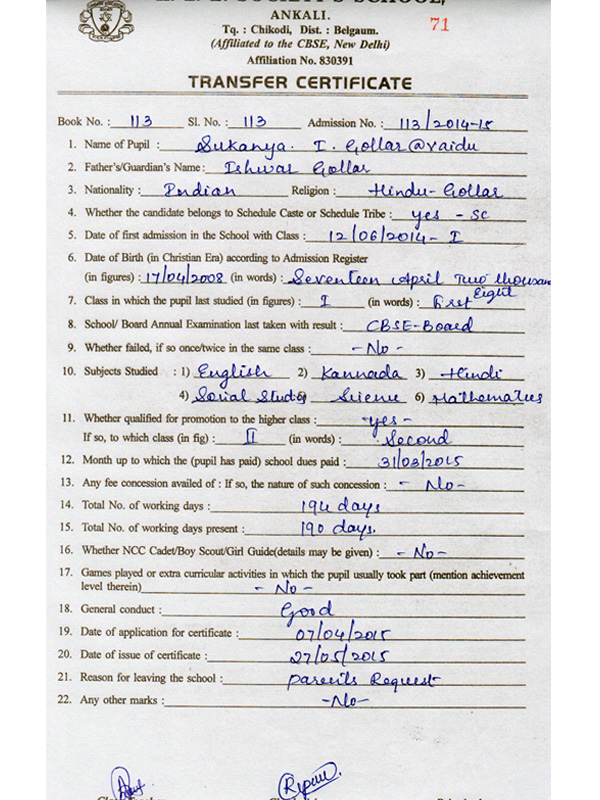 SOCIETY'S SCHOOL,
ANKALI.
71
Tq. : Chikodi, Dist. : Belgaum.
(Affiliated to the CBSE, New Delhi)
Affiliation No. 830391
TRANSFER CERTIFICATE
Book No. : 113 Sl. No. : 113 Admission No. : 113/2014-15
1. Name of Pupil : Sukanya. I. Gollar@vaidu
2. Father's/Guardian's Name : Ishwar Gollar
3. Nationality : Indian Religion : Hindu-Gollar
4. Whether the candidate belongs to Schedule Caste or Schedule Tribe : yes - SC
5. Date of first admission in the School with Class : 12/06/2014 - I
6. Date of Birth (in Christian Era) according to Admission Register
(in figures) : 17/04/2008 (in words) : Seventeen April Two thousan
Eight
7. Class in which the pupil last studied (in figures) : I (in words) : First
8. School/ Board Annual Examination last taken with result : CBSE-Board
9. Whether failed, if so once/twice in the same class : -No-
10. Subjects Studied : 1) English 2) Kannada 3) Hindi
4) Social Studies 5) Science 6) Mathematics
11. Whether qualified for promotion to the higher class : -yes-
If so, to which class (in fig) : II (in words) : Second
12. Month up to which the (pupil has paid) school dues paid : 31/03/2015
13. Any fee concession availed of : If so, the nature of such concession : - No-
14. Total No. of working days : 194 days
15. Total No. of working days present : 190 days.
16. Whether NCC Cadet/Boy Scout/Girl Guide(details may be given) : -No-
17. Games played or extra curricular activities in which the pupil usually took part (mention achievement
level therein) - No -
18. General conduct : Good
19. Date of application for certificate : 07/04/2015
20. Date of issue of certificate : 27/05/2015
21. Reason for leaving the school : parents Request
22. Any other marks : -No-